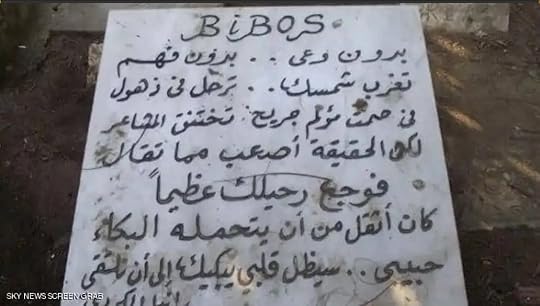 BiBOS
بدون وعى .. بدون فهم
تغرب شمسك .. ترحل فى ذهول
فى صمت مؤلم جريح تختنق المشاعر
لكن الحقيقة أصعب مما تقال
فوجع رحيلك عظيماً
كان أثقل من أن يتحمله البكاء
حبيبى .. سيظل قلبي يبكيك إلى أن نلتقى
SKY NEWS SCREEN GRAB